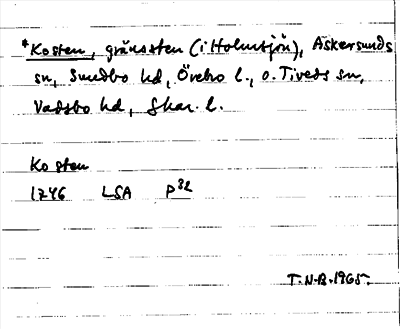 *Kosten, gränssten (i Holmsjön), Askersunds
sn, Sundbo hd, Örebro l., o. Tiveds sn,
Vadsbo hd, Skar. l.
Kosten
1746 LSA P32
T.N-B. 1965.